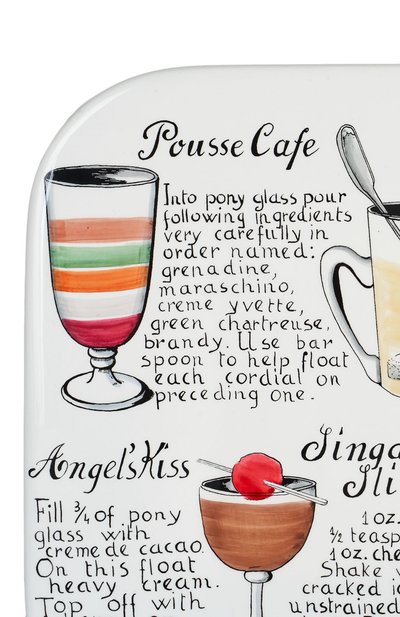 Pousse Cafe
Into pony glass pour
following ingredients
very carefully in
order named:
grenadine,
maraschino,
creme yvette,
green chartreuse,
brandy. Use bar
spoon to help float
each cordial on
preceding one.
Angel's Kiss
Fill ¾ of pony
glass with
creme de cacao.
On this float
heavy cream.
Top off with
Singa
Sli
1 oz.
½ teasp
1 oz. che
Shake
cracked i
unstrained